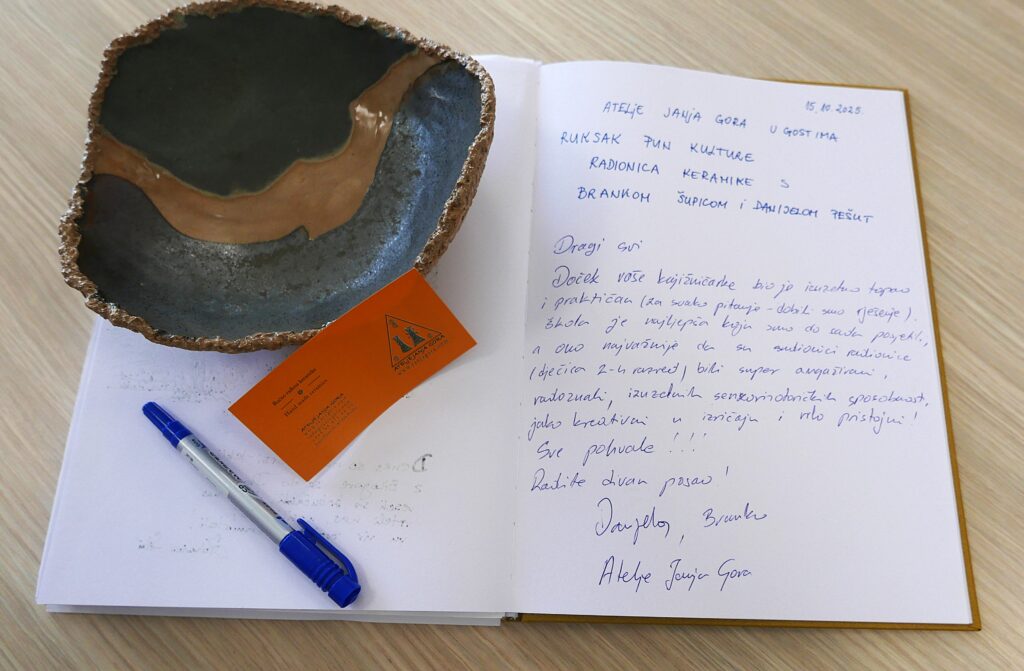 15.10.2025.
ATELJE JANJA GORA U GOSTIMA
RUKSAK PUN KULTURE
RADIONICA KERAMIKE S
BRANKOM ŠUPICOM I DANIJELOM PEŠUT
Dragi svi
Doček vaše knjižničarke bio je izuzetno topao
i praktičan (za svako pitanje - dobili smo rješenje).
Škola je najljepša koju smo do sada posjetili,
a ono najvažnije da su sudionici radionice
(dječica 2-u razred) bili super angažirani,
radoznali, izuzetnih senzomotoričkih sposobnosti,
jako kreativni u izričaju i vrlo pristojni!
Sve pohvale !!!
Radite divan posao!
Danijela, Branko
Atelje Janja Gora
ATELJE JANJA GORA
Ručno rađena keramika
Hand made ceramics
ATELJE JANJA GORA